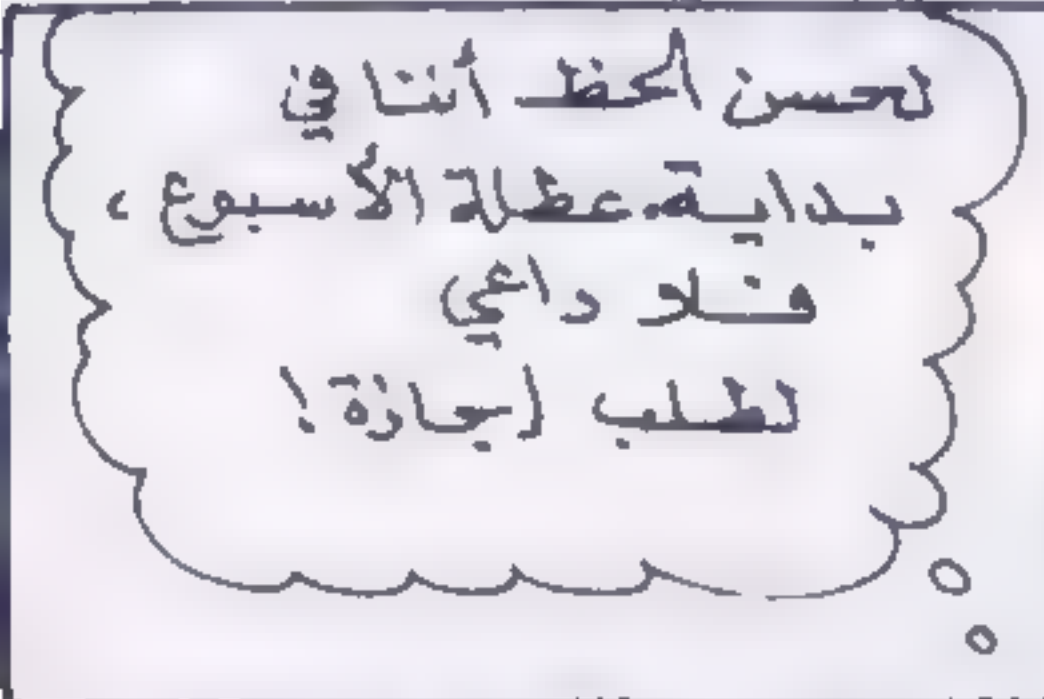 لحسن الحظ أننا في
بداية عطلة الأسبوع ،
فلا داعي
لطلب اجازة !